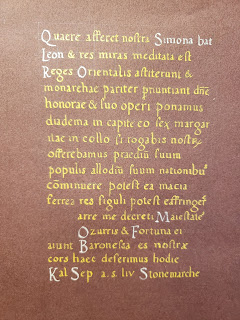 Quaere afferet nostri Simona bat
Leon & res miras meditata est
Reges Orientalis astiterunt &
monarchae pariter pnuntiant dnē
honorae & suo operi ponamus
diadema in capite eo sex margar
itae in collo si rogabis nostrę
offerebamus praediū suum
populis allodiū suum nationibus
cōminuere potest ea macia
ferrea res siguli potest effringet
arre me decreti Maiestate
Ozurris & Fortuna ei
aiunt Baronessa es nostrę
cors haec deferimus hodie
Kal Sep a.s. liv Stonemarche